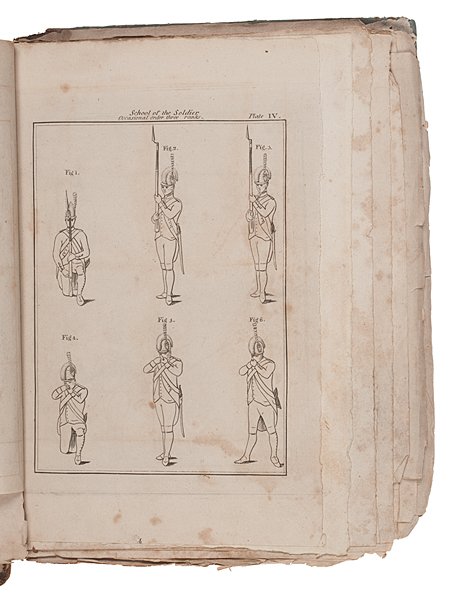 School of the Soldier
Occasional order three ranks.
Plate IV.
Fig 1.
Fig 2.
Fig 3.
Fig 4.
Fig 5.
Fig 6.